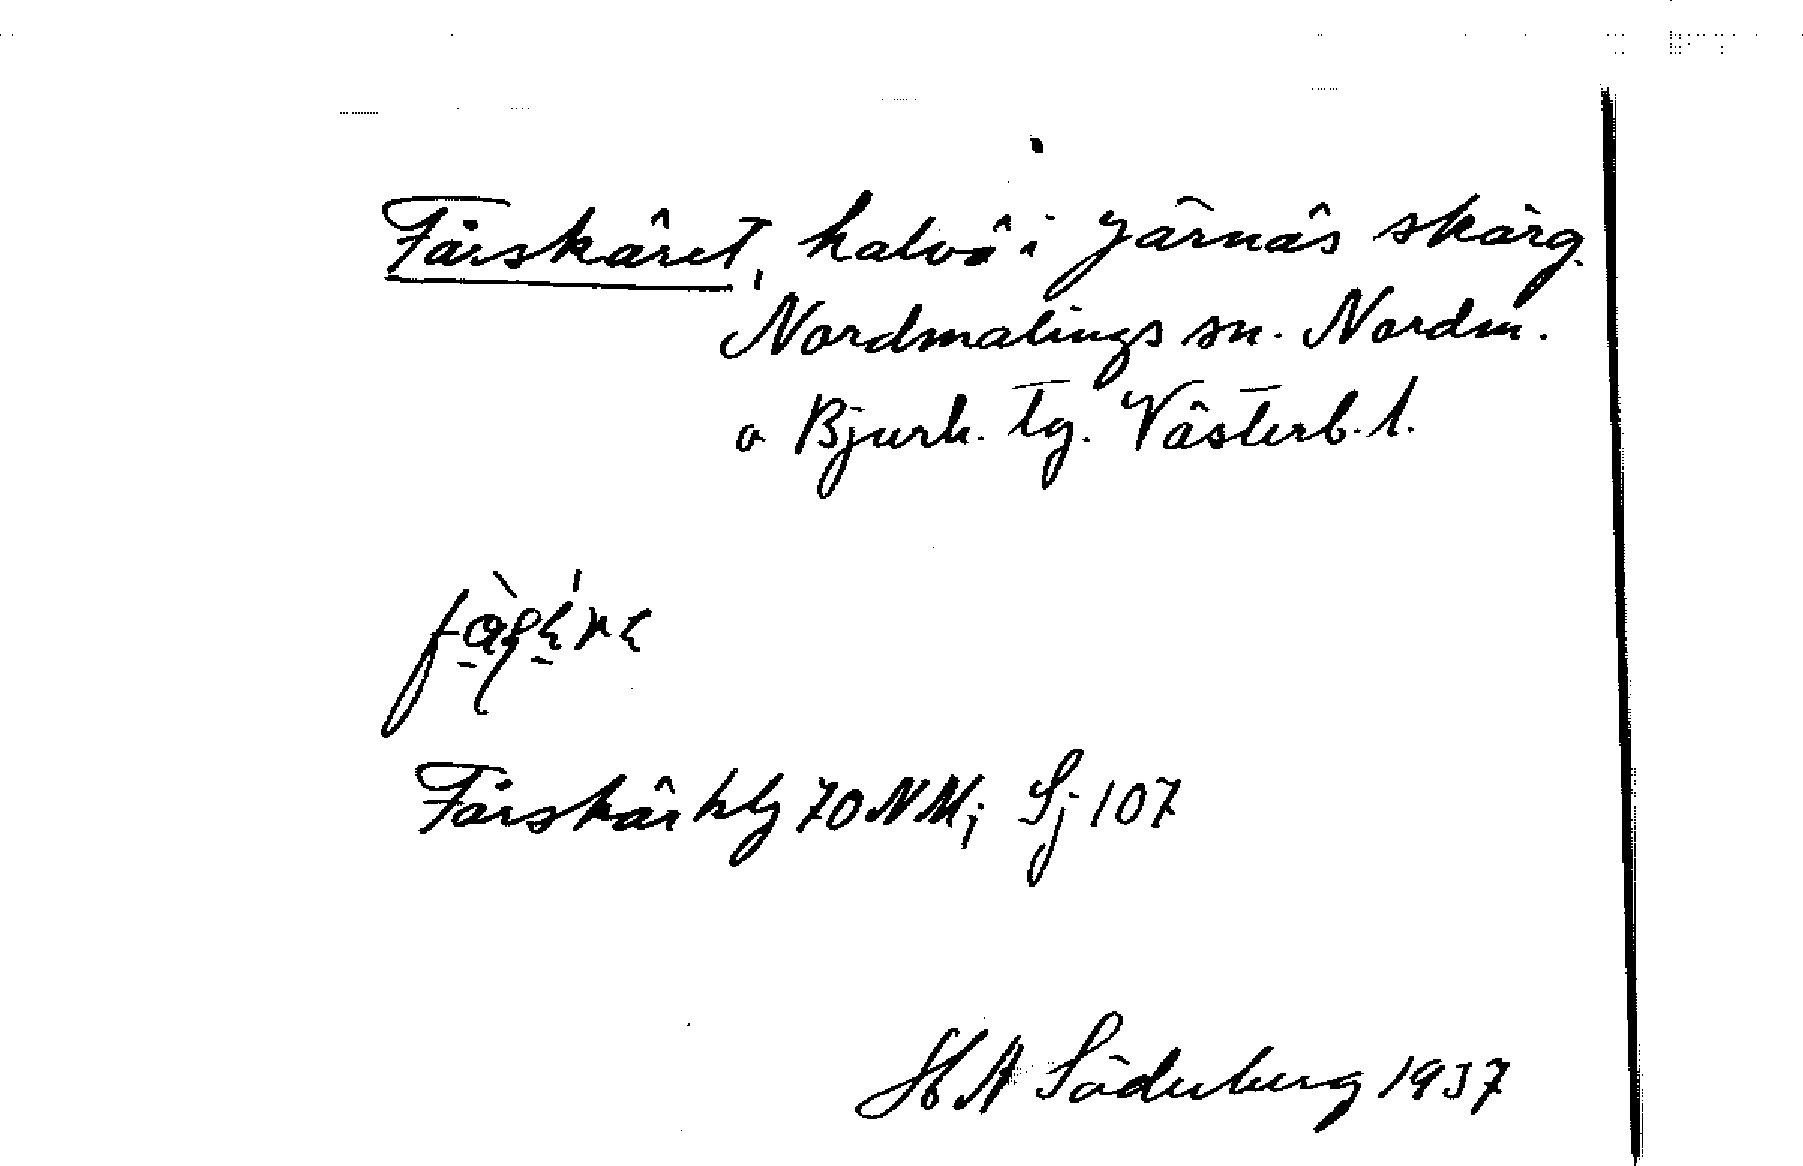 Fårskäret, halvö i Järnäs skärg.
Nordmalings sn. Nordm.
o Bjurh. tg. Västerb. l.
Fårskär hlg 70 NM; Sj 107
H A Söderberg 1937